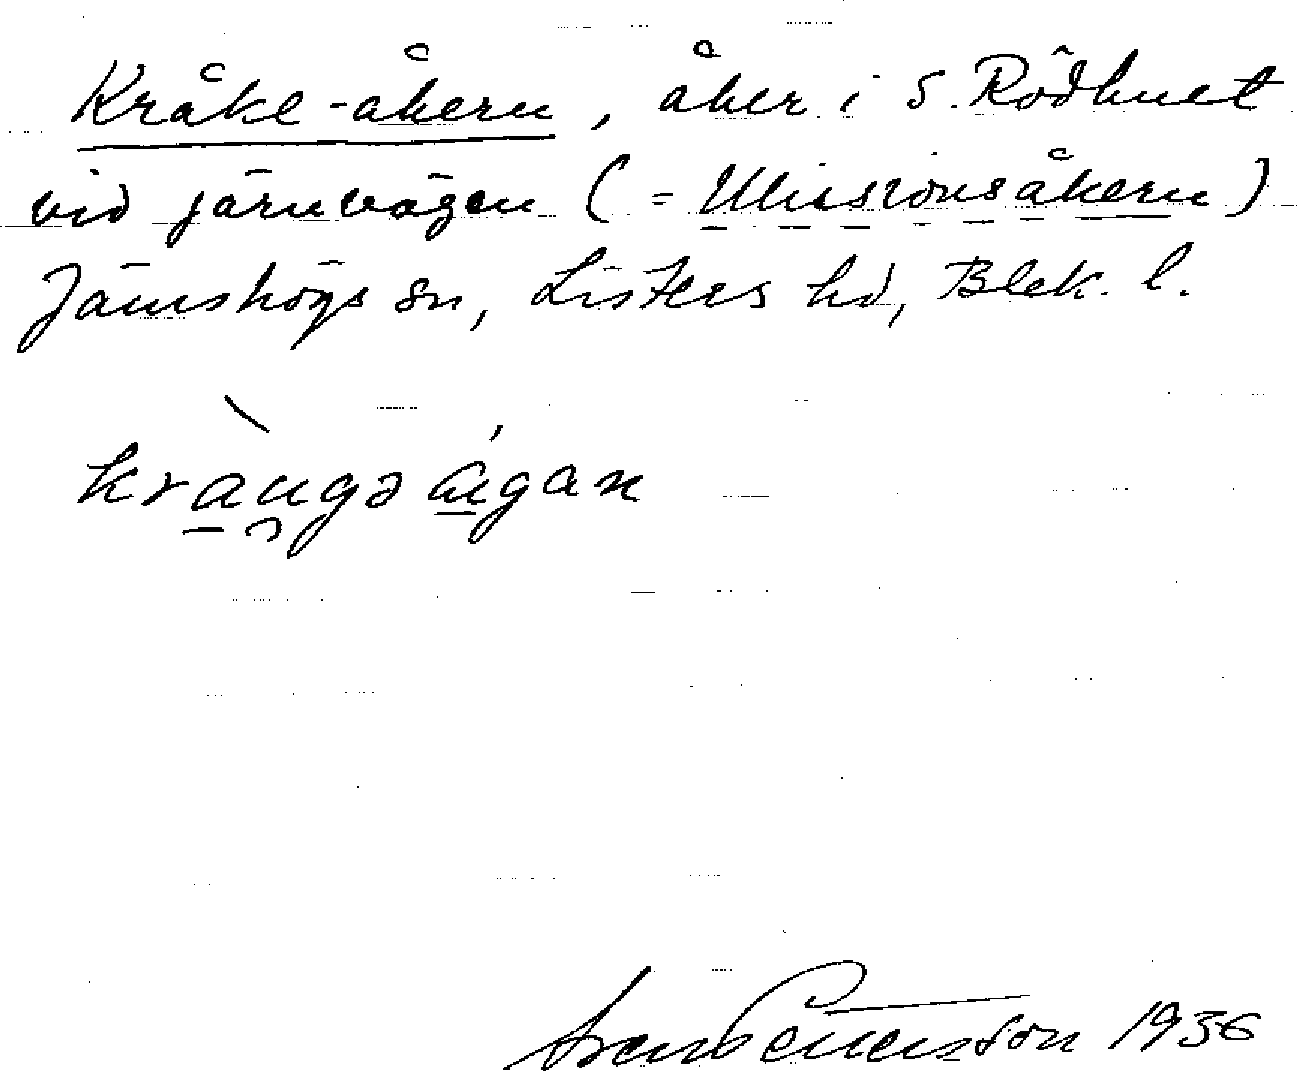 Kråke-åkern, åker i S. Rödhult
vid järnvägen (= Missionsåkern)
Jämshögs sn, Listers hd, Blek. l.
Sven Benson 1936